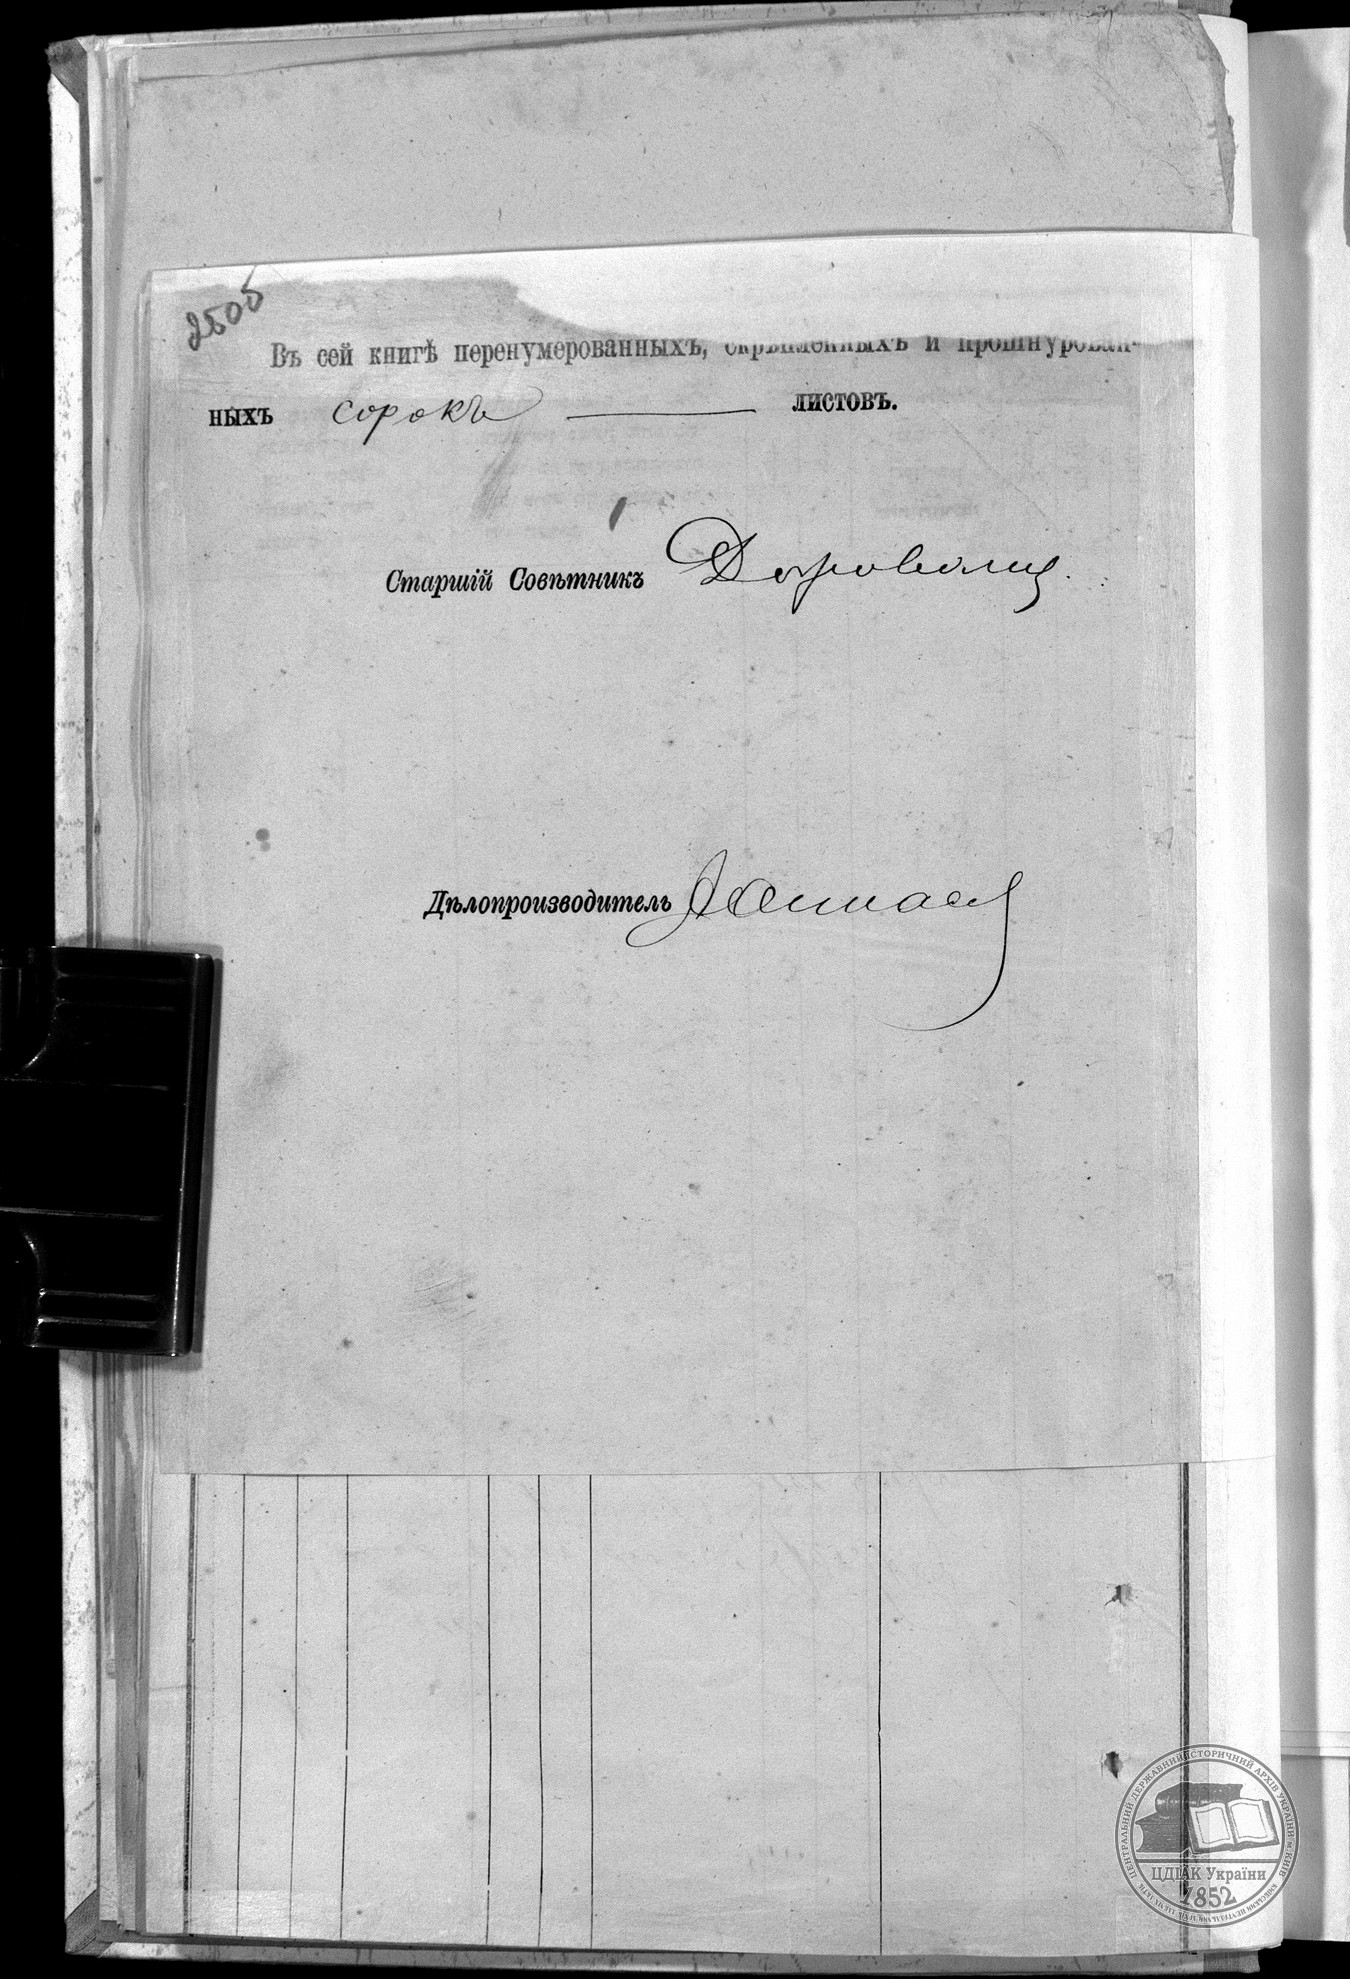 250б
Въ сей книгѣ перенумерованныхъ, скрѣпленныхъ и прошнурован-
ныхъ сорокъ листовъ.
Старшій Совѣтникъ
Дѣлопроизводитель
ЦЕНТРАЛЬНИЙ ДЕРЖАВНИЙ ІСТОРИЧНИЙ АРХІВ УКРАЇНИ м.КИЇВ
ЦДІАК України
1852